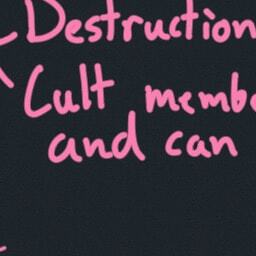 Destruction
Cult membe
and can